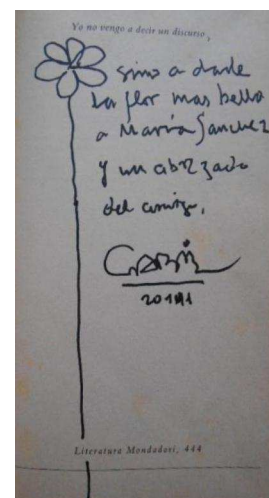 Yo no vengo a decir un discurso,
sino a darle
la flor mas bella
a María Sanchez
y un abrazado
del amigo,
GABO
2011
Literatura Mondadori, 444